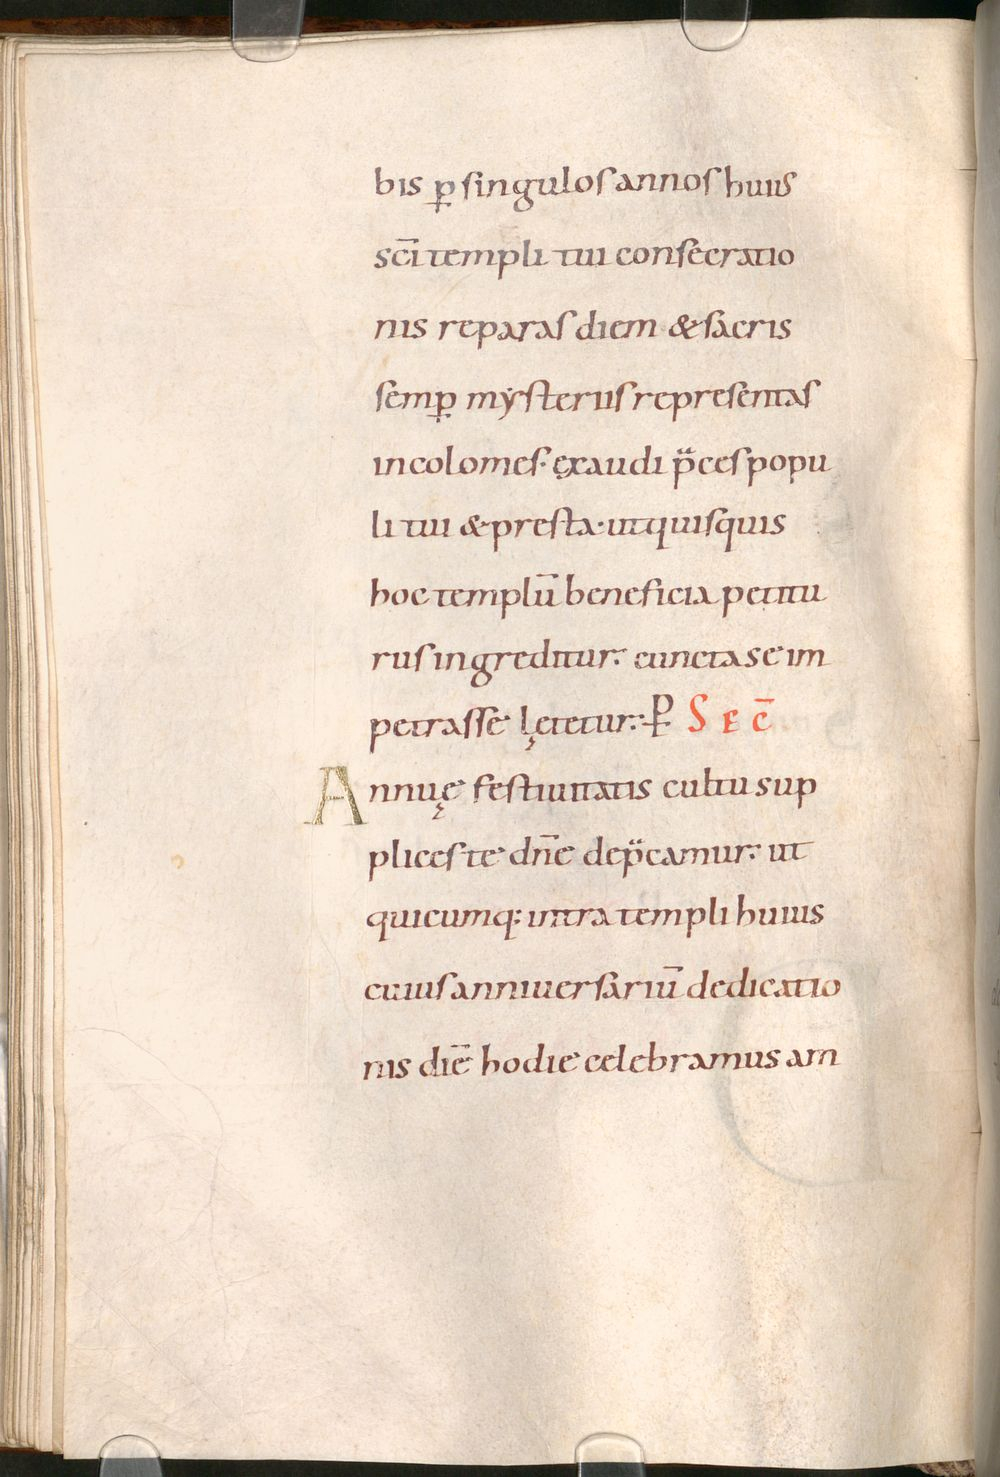 bis p̲ singulos annos huius
sc̄i templi tui consecratio
nis reparas diem & sacris
semp̲ mẏsteriis representas
incolomes· ęxaudi p̈ces popu
li tui & presta· ut quisquis
hoc templū beneficia petitu
rus ingreditur· cuncta se im
petrasse lętetur· P̲ SEC̄
Annuę festiuitatis cultu sup
plices te dn̄e dep̈camur· ut
quicumq: intra templi huius
cuius anniuersariū dedicatio
nis diē hodie celebramus am